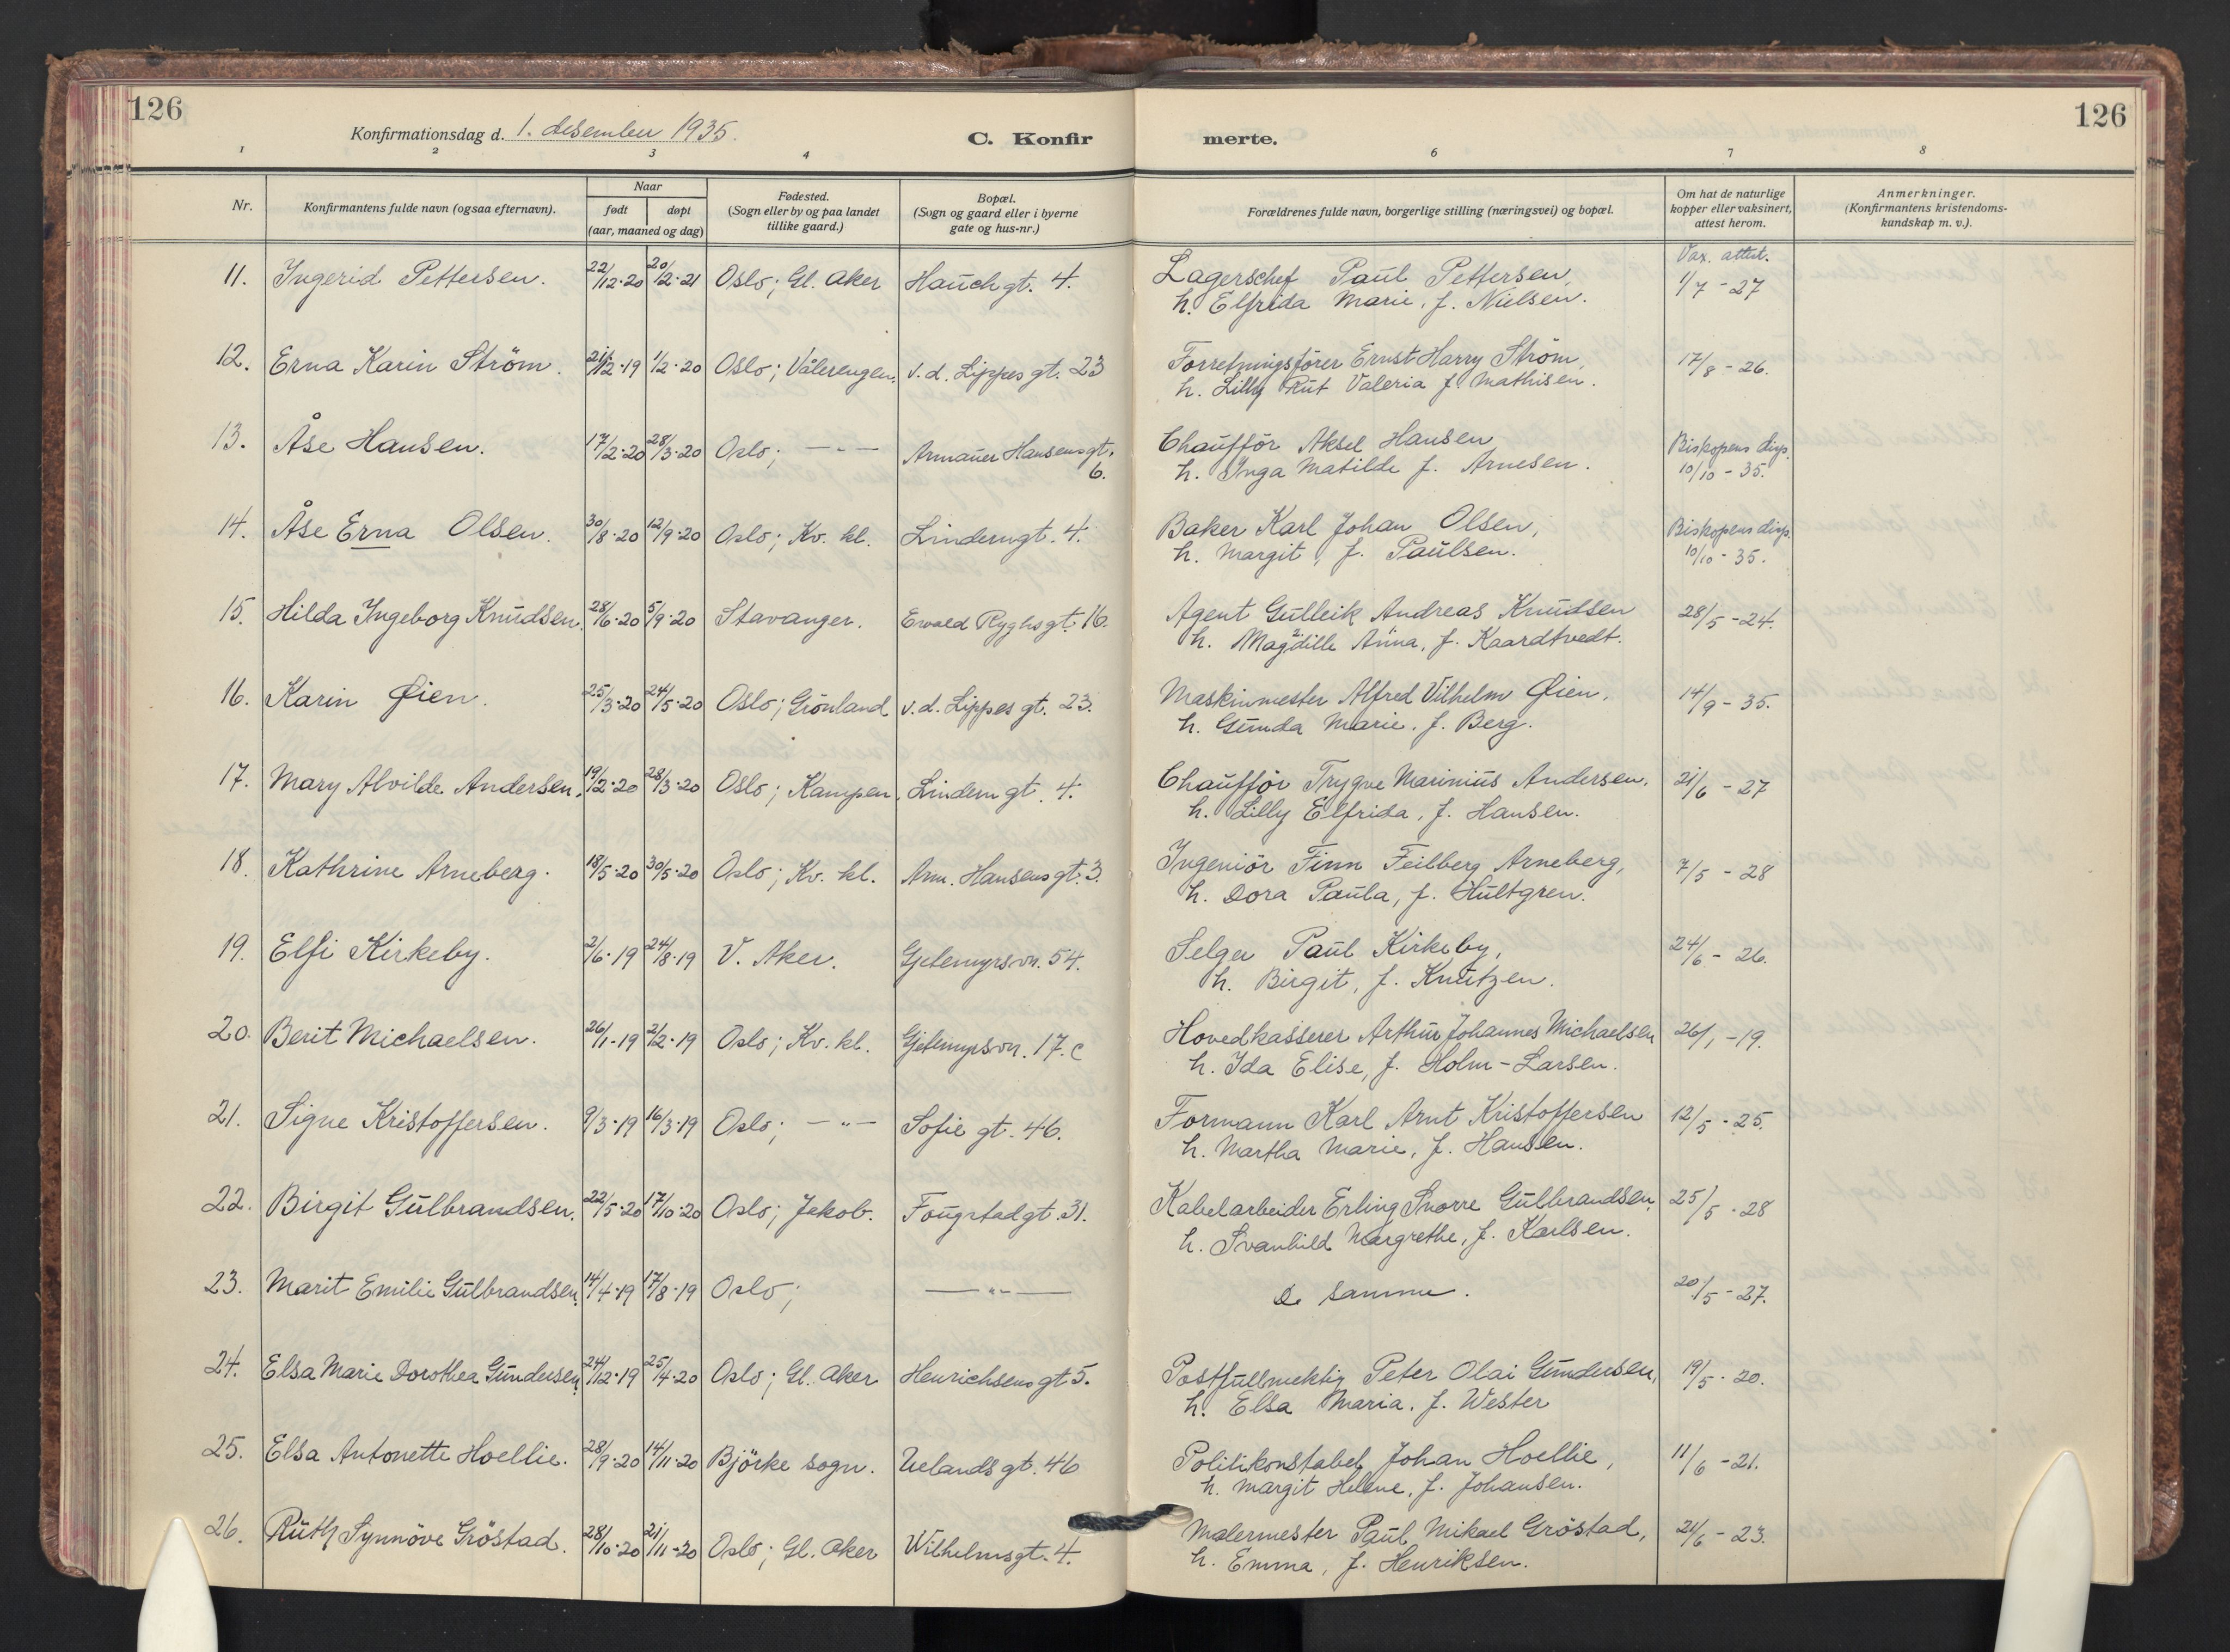 126
126
Konfirmationsdag d. 1. desember 1935.
C. Konfir
merte.
1 2 3 4 6 7 8
Nr.
Konfirmantens fulde navn (ogsaa efternavn).
Naar
født døpt
(aar, maaned og dag)
Fødested.
(Sogn eller by og paa landet
tillike gaard.)
Bopæl.
(Sogn og gaard eller i byerne
gate og hus-nr.)
Forældrenes fulde navn, borgerlige stilling (næringsvei) og bopæl.
Om hat de naturlige
kopper eller vaksinert,
attest herom.
Anmerkninger.
(Konfirmantens kristendoms-
kundskap m. v.).
Vax. attest.
11. Ingerid Pettersen. 22/12·20 20/2·21 Oslo; Gl. Aker Hauch gt. 4. Lagerschef Paul Pettersen, 1/7 - 27
h. Elfrida Marie, f. Nielsen.
12. Erna Karin Ström. 21/12·19 1/2·20 Oslo; Vålerengen. v. d. Lippes gt. 23 Forretningsförer Ernst Harry Ström, 17/8 - 26.
h. Lilly Rut Valeria f. Mathisen.
13. Åse Hansen. 17/2·20 28/3·20 Oslo; —"— Armauer Hansens gt. 6. Chaufför Aksel Hansen Biskopens disp.
h. Inga Matilde f. Arnesen. 10/10 - 35.
14. Åse Erna Olsen. 30/8·20 12/9·20 Oslo; Kv. kl. Lindern gt. 4. Baker Karl Johan Olsen, Biskopens disp.
h. Margit, f. Paulsen. 10/10 - 35.
15. Hilda Ingeborg Knudsen. 28/6·20 5/9·20 Stavanger. Ewald Ryghs gt. 16. Agent Gulleik Andreas Knudsen 28/5 - 24.
h. Magdille Anna, f. Kaardtvedt.
16. Karin Øien. 25/3·20 24/5·20 Oslo; Grönland v. d. Lippes gt. 23. Maskinmester Alfred Vilhelm Øien, 14/9 - 35.
h. Gunda Marie, f. Berg.
17. Mary Alvilde Andersen. 19/2·20 28/3·20 Oslo; Kampen. Lindern gt. 4. Chaufför Trygve Marinius Andersen, 21/6 - 27
h. Lilly Elfrida, f. Hansen.
18. Kathrine Arneberg. 18/5·20 30/5·20 Oslo; Kv. kl. Arm. Hansens gt. 3. Ingeniör Finn Feilberg Arneberg, 7/5 - 28
h. Dora Paula, f. Hultgren.
19. Elfi Kirkeby. 2/6·19 24/8·19 V. Aker. Gjetemyrsvn. 54. Selger Paul Kirkeby, 24/6 - 26.
h. Birgit, f. Knutzen.
20. Berit Michaelsen. 26/1-19 2/2·19 Oslo; Kv. kl. Gjetemyrsvn. 17. c Hovedkasserer Arthur Johannes Michaelsen 26/1 - 19.
h. Ida Elise, f. Holm-Larsen.
21. Signe Kristoffersen. 9/3·19 16/3·19 Oslo; —"— Sofie gt. 46. Formann Karl Arnt Kristoffersen 12/5 - 25.
h. Martha Marie, f. Hansen.
22. Birgit Gulbrandsen. 22/5·20 17/10·20 Oslo; Jakob. Fougstad gt. 31. Kabelarbeider Erling Snorre Gulbrandsen, 25/5 - 28
h. Svanhild Margrethe, f. Karlsen.
23. Marit Emilie Gulbrandsen. 14/4·19 17/8·19 Oslo; —"— De samme. 20/5 - 27.
24. Elsa Marie Dorothea Gundersen. 24/12·19 25/4·20 Oslo; Gl. Aker Henrichsens gt 5. Postfullmektig Peter Olai Gundersen, 19/5 - 20.
h. Elsa Maria, f. Wester
25. Elsa Antonette Hoellie. 28/9·20 14/11·20 Björke sogn. Uelands gt. 46 Politikonstabel Johan Hoellie, 11/6 - 21.
h. Margit Helene, f. Johansen.
26. Ruth Synnöve Gröstad. 28/10·20 21/11-20 Oslo; Gl. Aker Wilhelms gt. 4. Malermester Paul Mikael Gröstad, 21/6 - 23.
h. Emma, f. Henriksen.